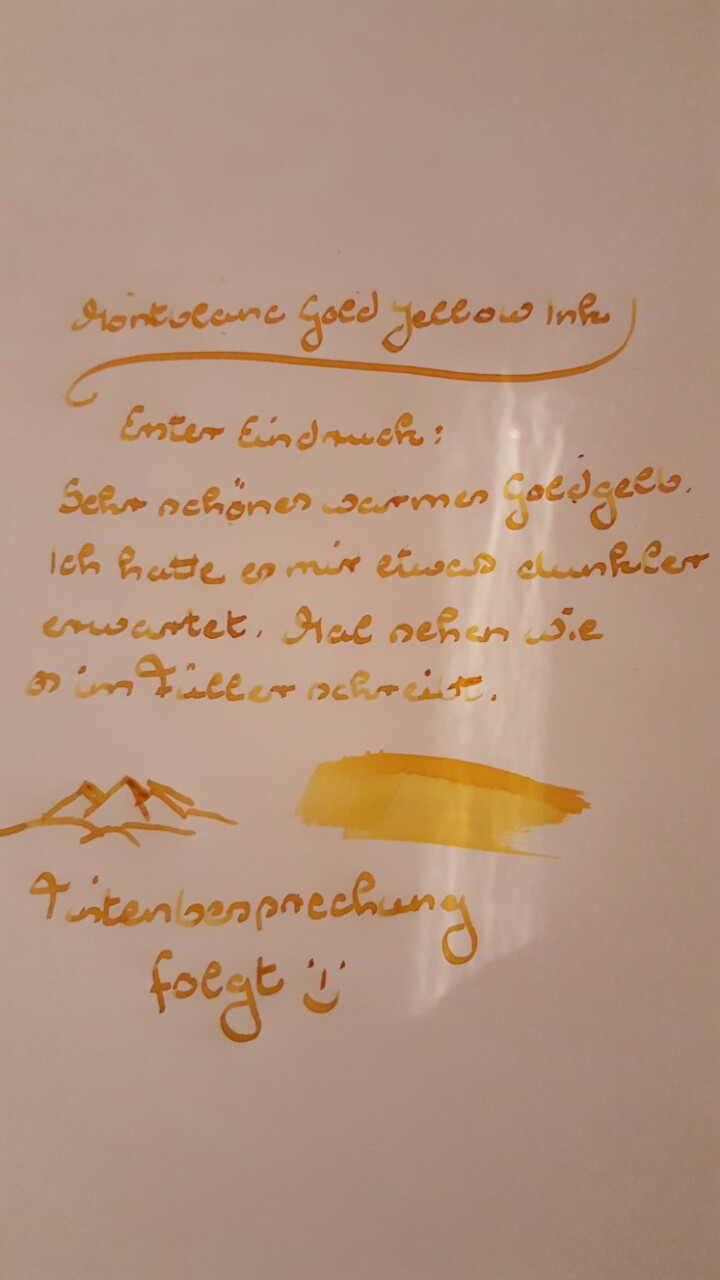 Montblanc Gold Yellow Ink
Erster Eindruck:
Sehr schönes warmes Goldgelb.
Ich hatte es mir etwas dunkler
erwartet. Mal sehen wie
es im Füller schreibt.
Tintenbesprechung
folgt :)